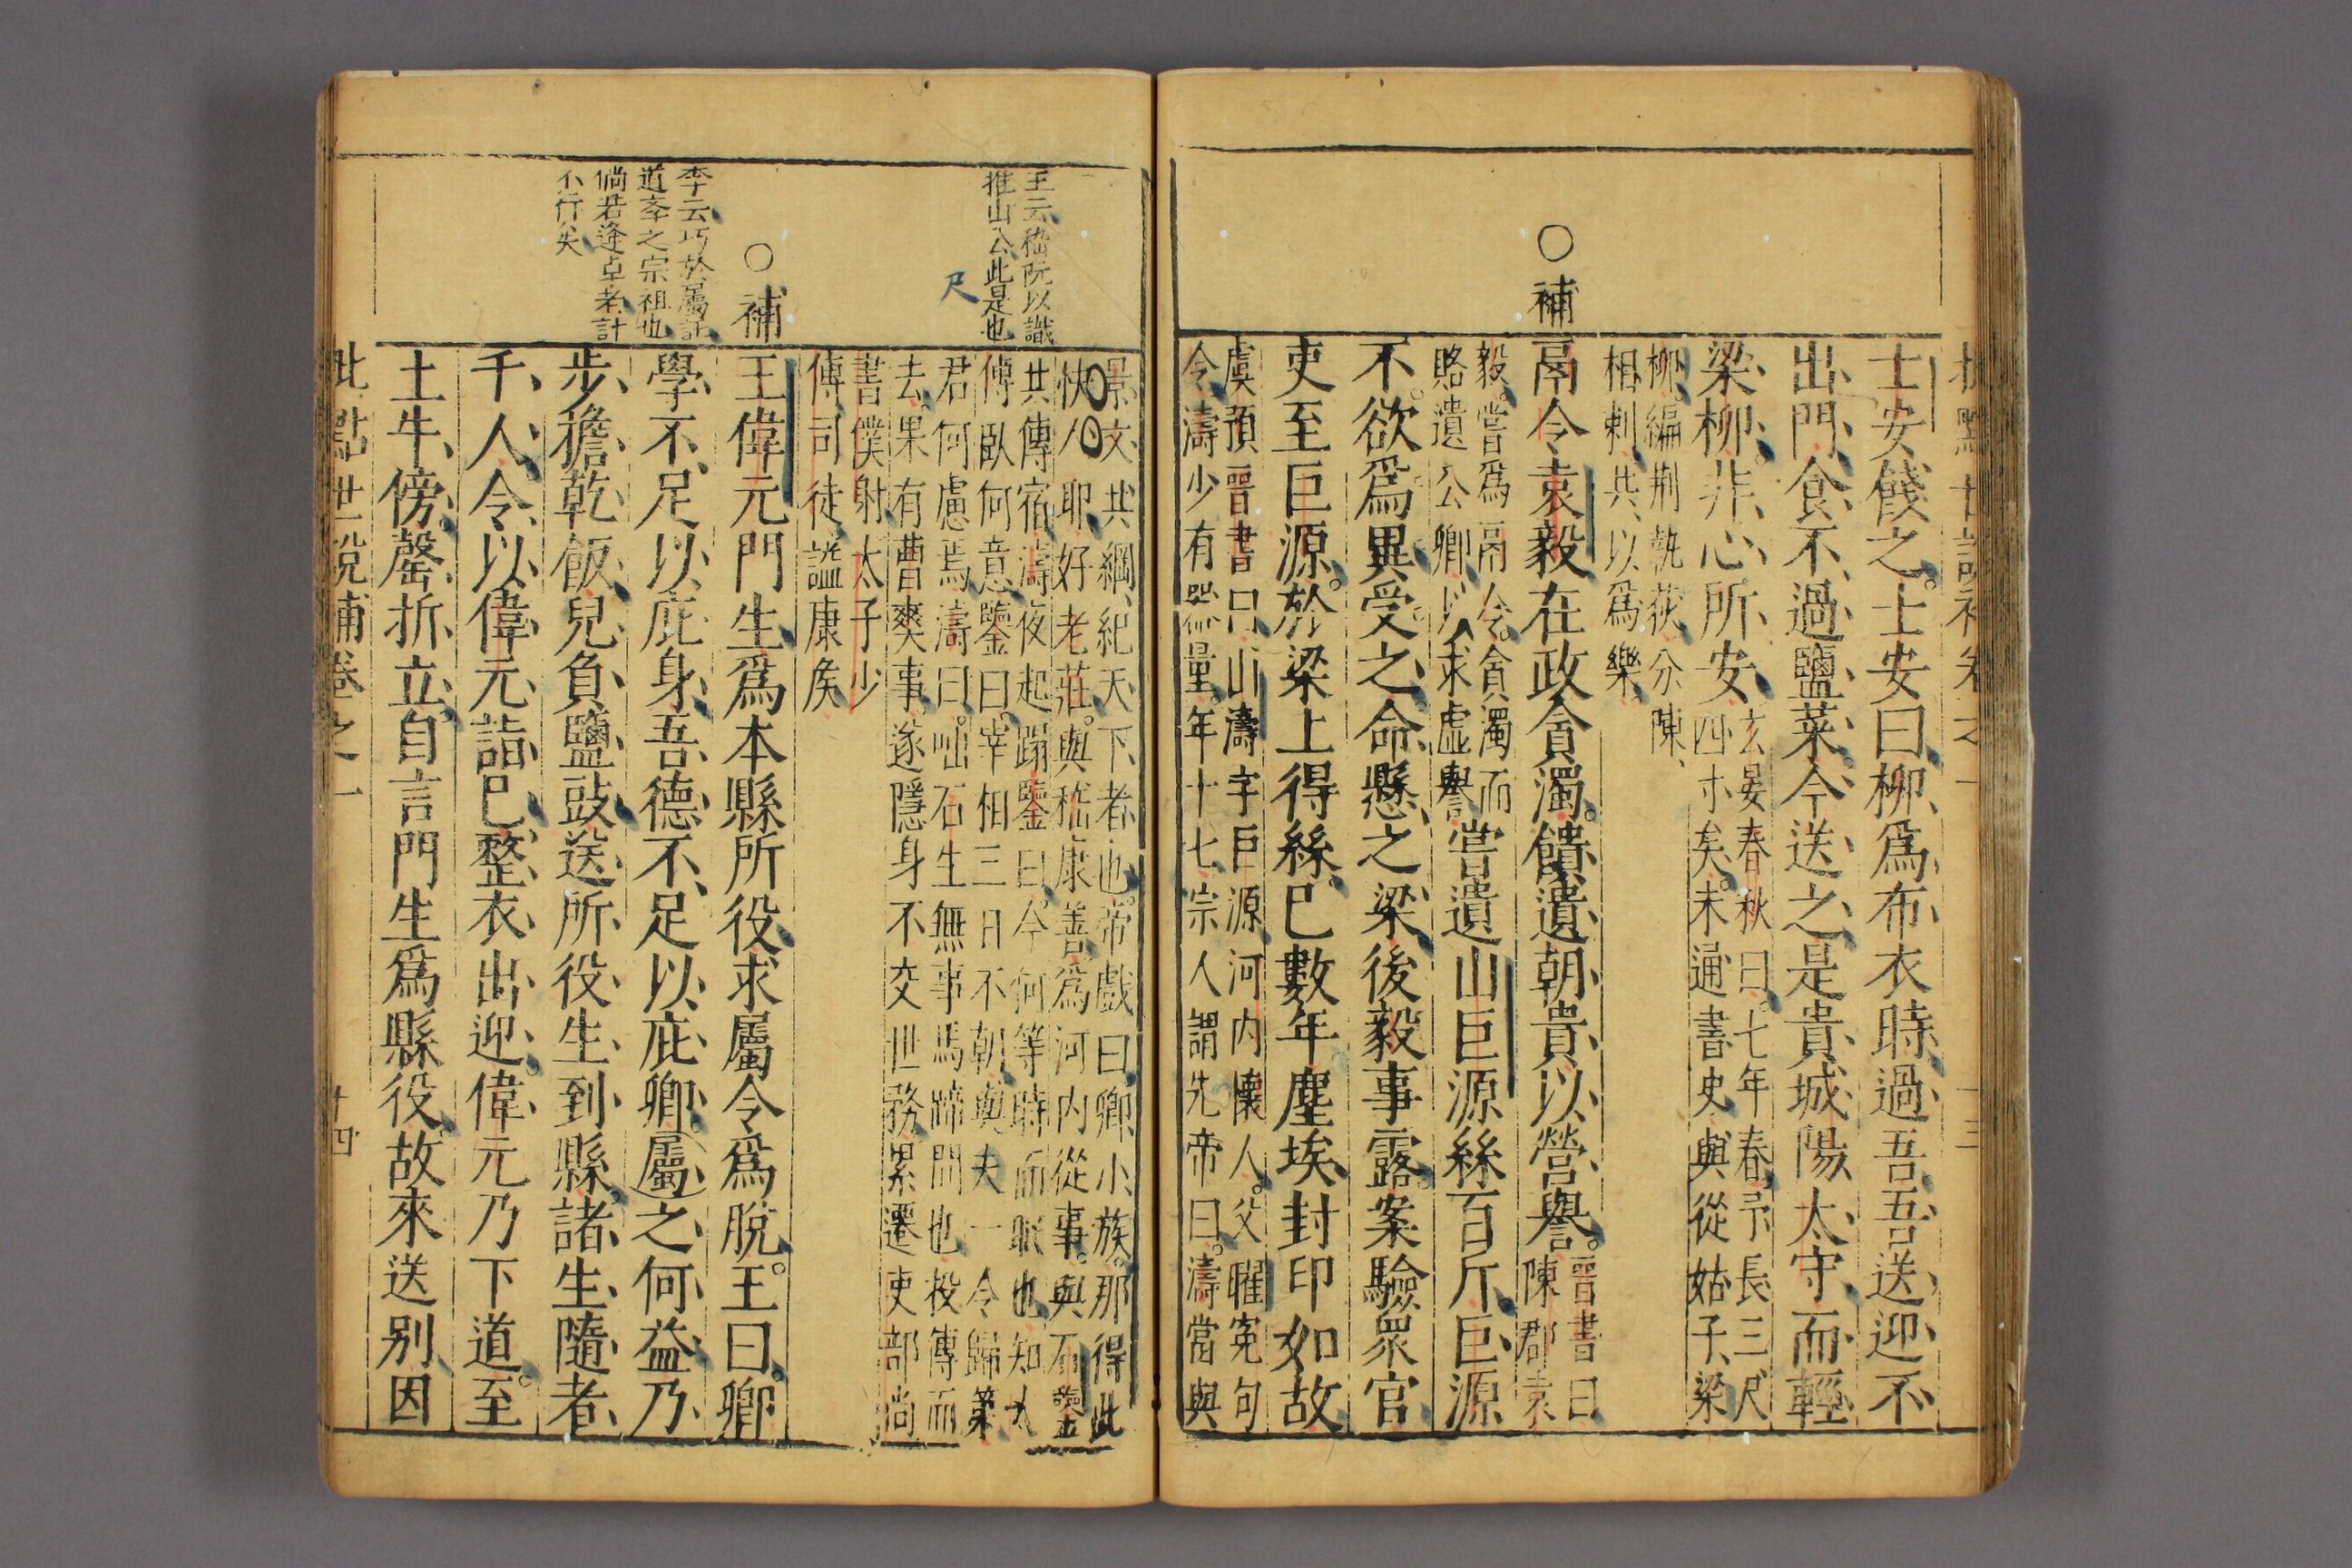 士安餞之。士安曰柳爲布衣時過吾吾送迎不
出門食不過鹽菜今送之是貴城陽太守而輕
梁柳非心所安
玄晏春秋曰。七年春予長三尺
四寸矣。未通書史與從姑子梁
柳編荆執荻分陳
相刺共以爲樂
○補
鬲令袁毅在政貪濁。饋遺朝貴以營譽。
晉書曰
陳郡袁
毅。嘗爲鬲令。貪濁而
賂遺公卿以求虛譽
嘗遺山巨源絲百斤。巨源
不欲爲異受之命懸之梁後毅事露。案驗眾官
吏至巨源於梁上得絲巳數年塵埃封印如故
虞預晉書曰山濤字巨源河内懷人。父曜寃句
令濤少有器量。年十七宗人謂先帝曰。濤當與
景文共綱紀天下者也。帝戲曰卿小族。那得此
快人耶好老莊。與嵇康善爲河内從事。與石鑒
共傳宿濤夜起蹋鑒曰今何等時而眠也知太
傅臥何意鑒曰。宰相三日不朝與夫一令歸第
君何慮焉濤曰。咄石生無事馬蹄間也投傳而
去。果有曹爽事遂隱身不交世務累遷吏部尚
書僕射太子少
傅司徒謚康侯
王云嵇阮以識
推山公此是也
尺
○補
王偉元門生爲本縣所役求屬令爲脫。王曰。卿
學不足以庇身吾德不足以庇卿屬之何益乃
步擔乾飯兒負鹽豉送所役生到縣諸生隨者
千人令以偉元詣巳整衣出迎。偉元乃下道。至
土牛傍。罄折立自言門生爲縣役故來送别因
李云巧於屬託
道夲之宗祖也
倘若逢卓老計
不行矣
批點世説補卷之一
十四